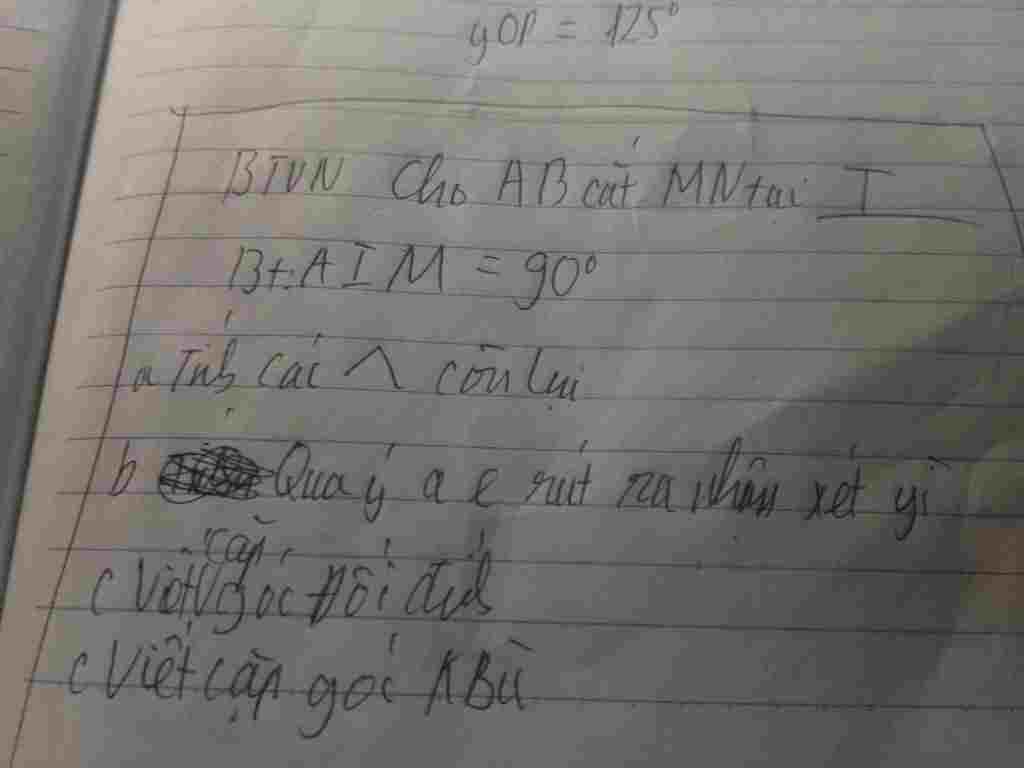 yOP = 125°
BTVN Cho AB cắt MN tại I
Bt: AIM = 90°
a Tính các ^ còn lại
b Qua ý a e rút ra nhận xét gì
c Viết cặp góc đối đỉnh
c Viết cặp góc KBù